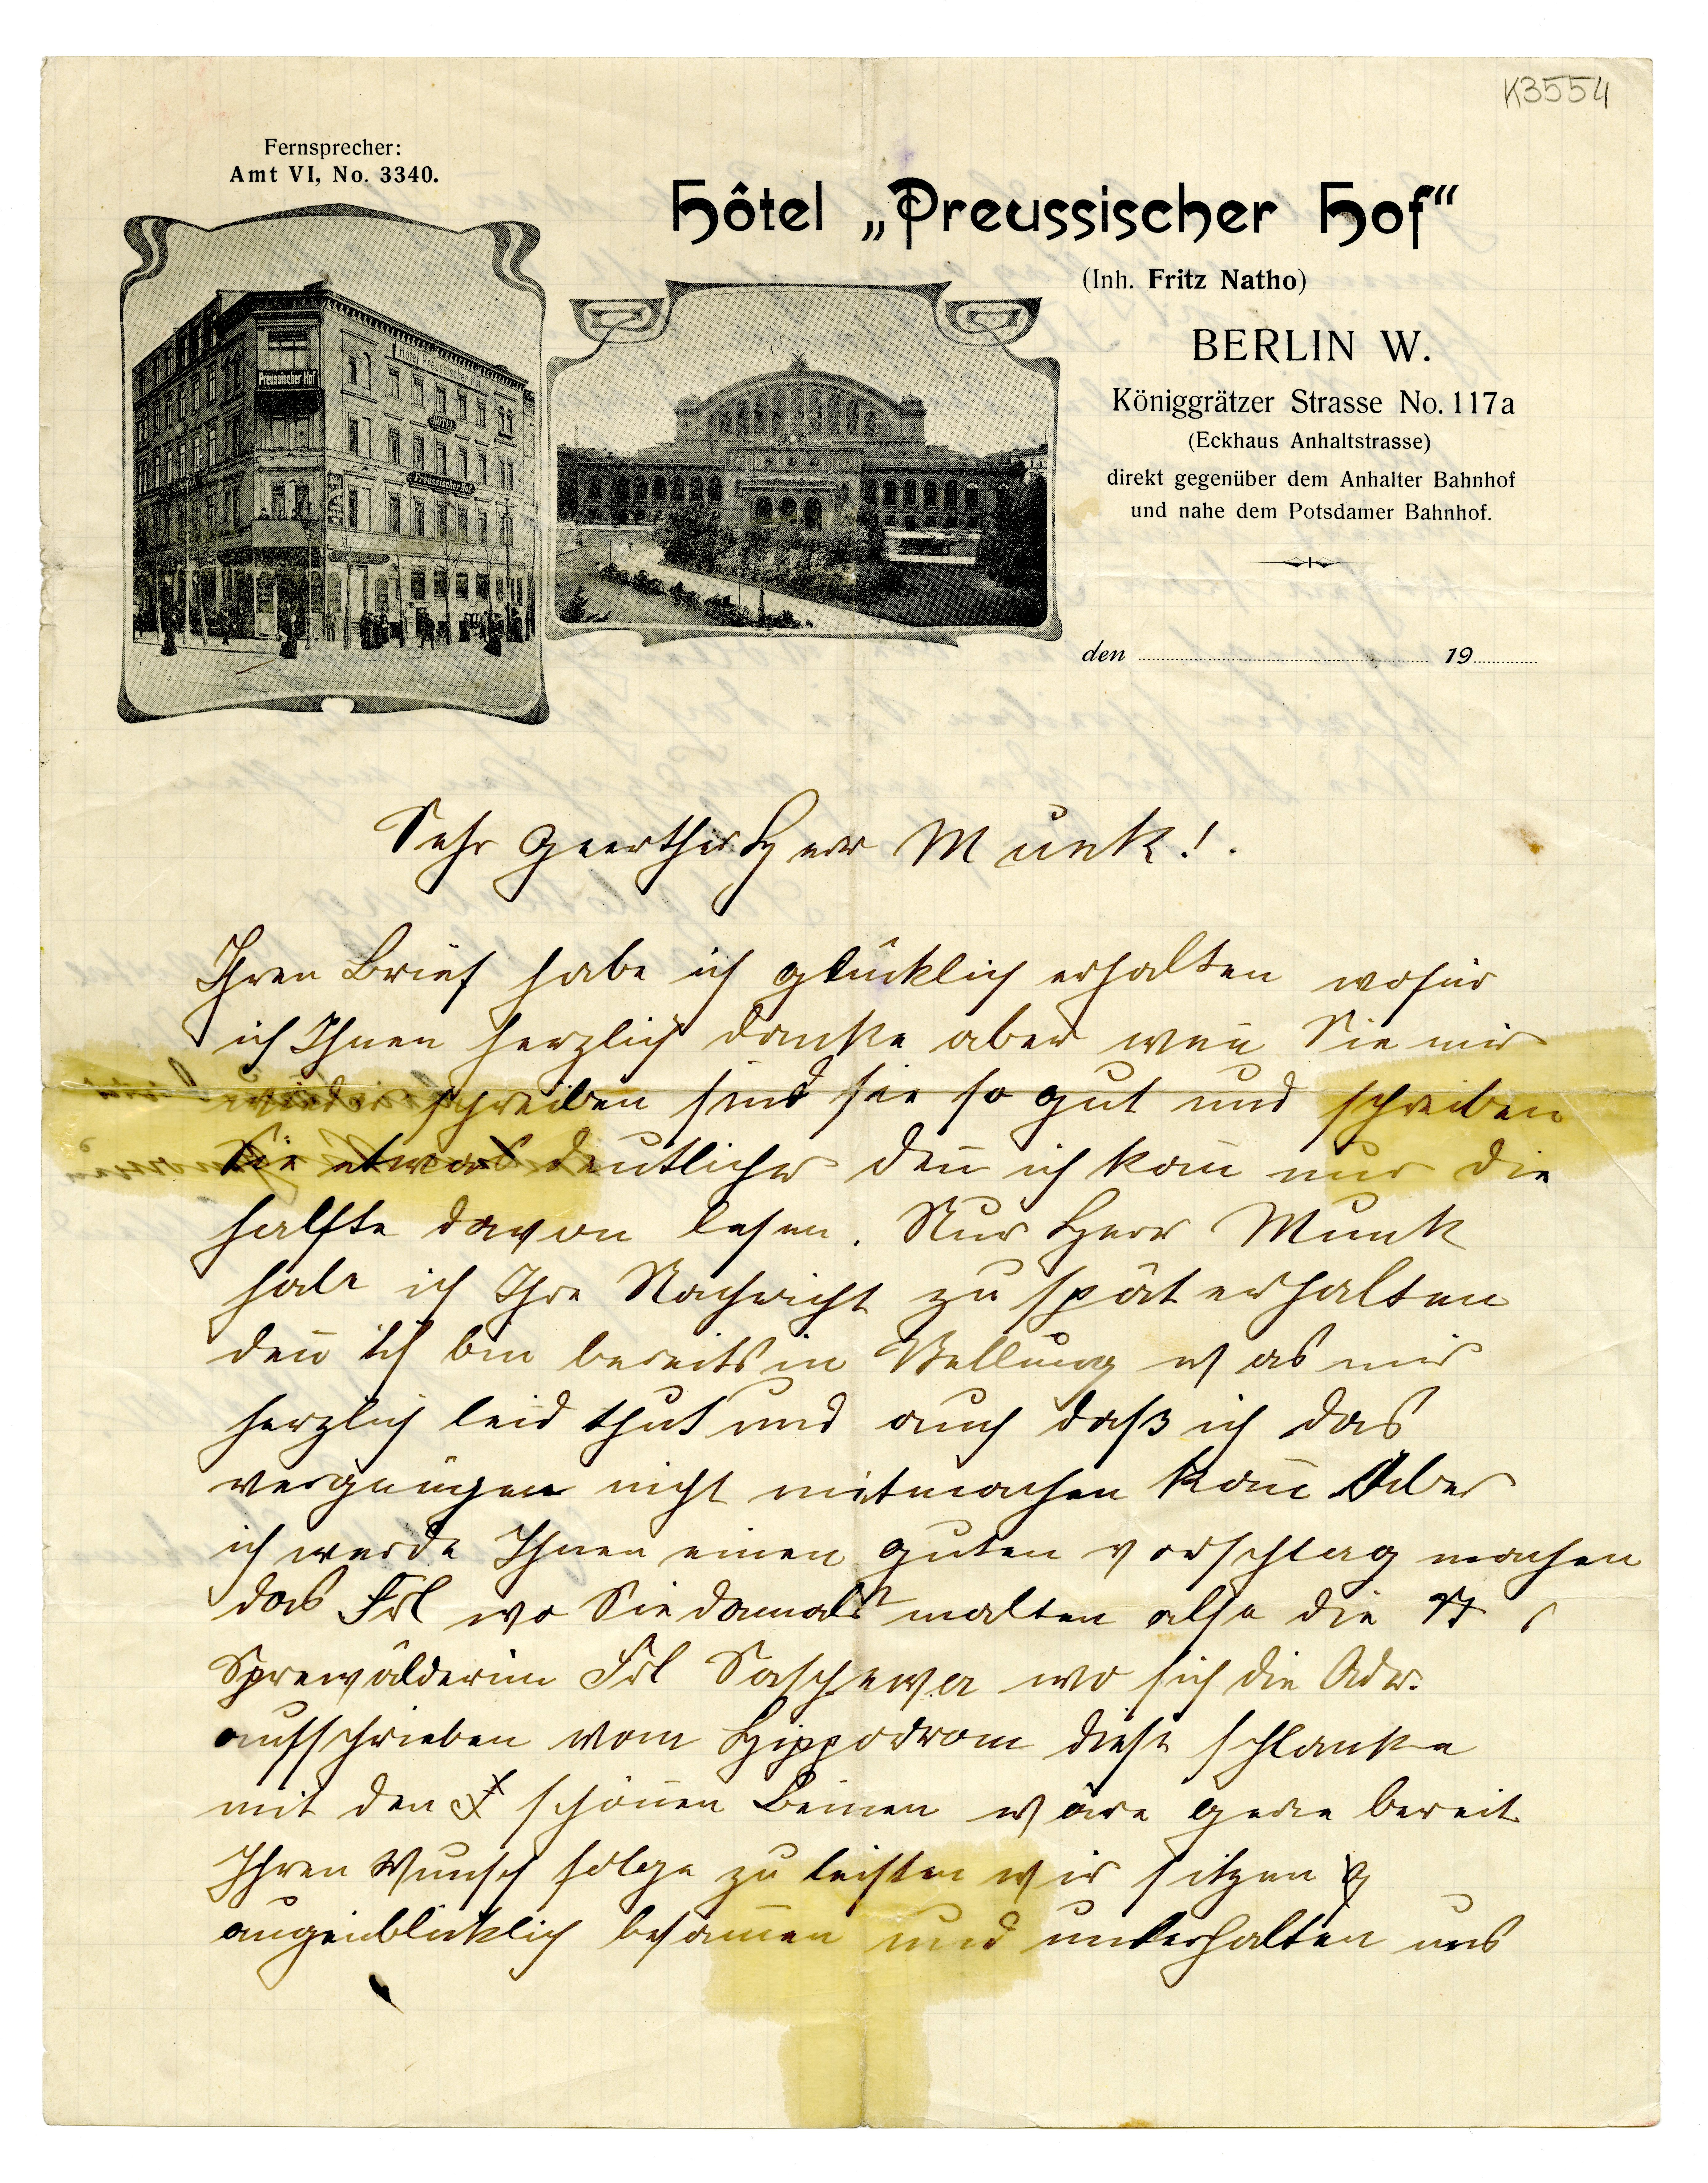 K3554
Fernsprecher:
Amt VI, No. 3340.
Hôtel „Preussischer Hof“
(Inh. Fritz Natho)
BERLIN W.
Königgrätzer Strasse No. 117a
(Eckhaus Anhaltstrasse)
direkt gegenüber dem Anhalter Bahnhof
und nahe dem Potsdamer Bahnhof.
Hotel Preussischer Hof
Preussischer Hof
HOTEL
Preussischer Hof
den 19
Sehr Geerther Herr Munk!.
Ihren Brief habe ich glücklich erhalten wofür
ich Ihnen herzlich danke aber wen̄ Sie mir
wieder schreiben sind sie so gut und schreiben
Sie etwas deutlicher den̄ ich kan̄ nur die
halfte davon lesen. Nur Herr Munk
habe ich Ihre Nachricht zu spät erhalten
den̄ ich bin bereits in Stellung was mir
herzlich leid thut und auch daß ich das
vergnügen nicht mitmachen kan̄ Aber
ich werde Ihnen einen guten vorschlag machen
das Frl wo Sie damals malten also die
Sprewälderin Frl wo sich die Adr.
aufschrieben vom Hippodrom diese schlanke
mit den schönen Beinen wäre gerne bereit
Ihren Wunsch folge zu leisten wir sitzen
augenblicklich besam̄en und unterhalten uns